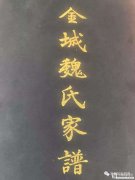 金城魏氏家譜